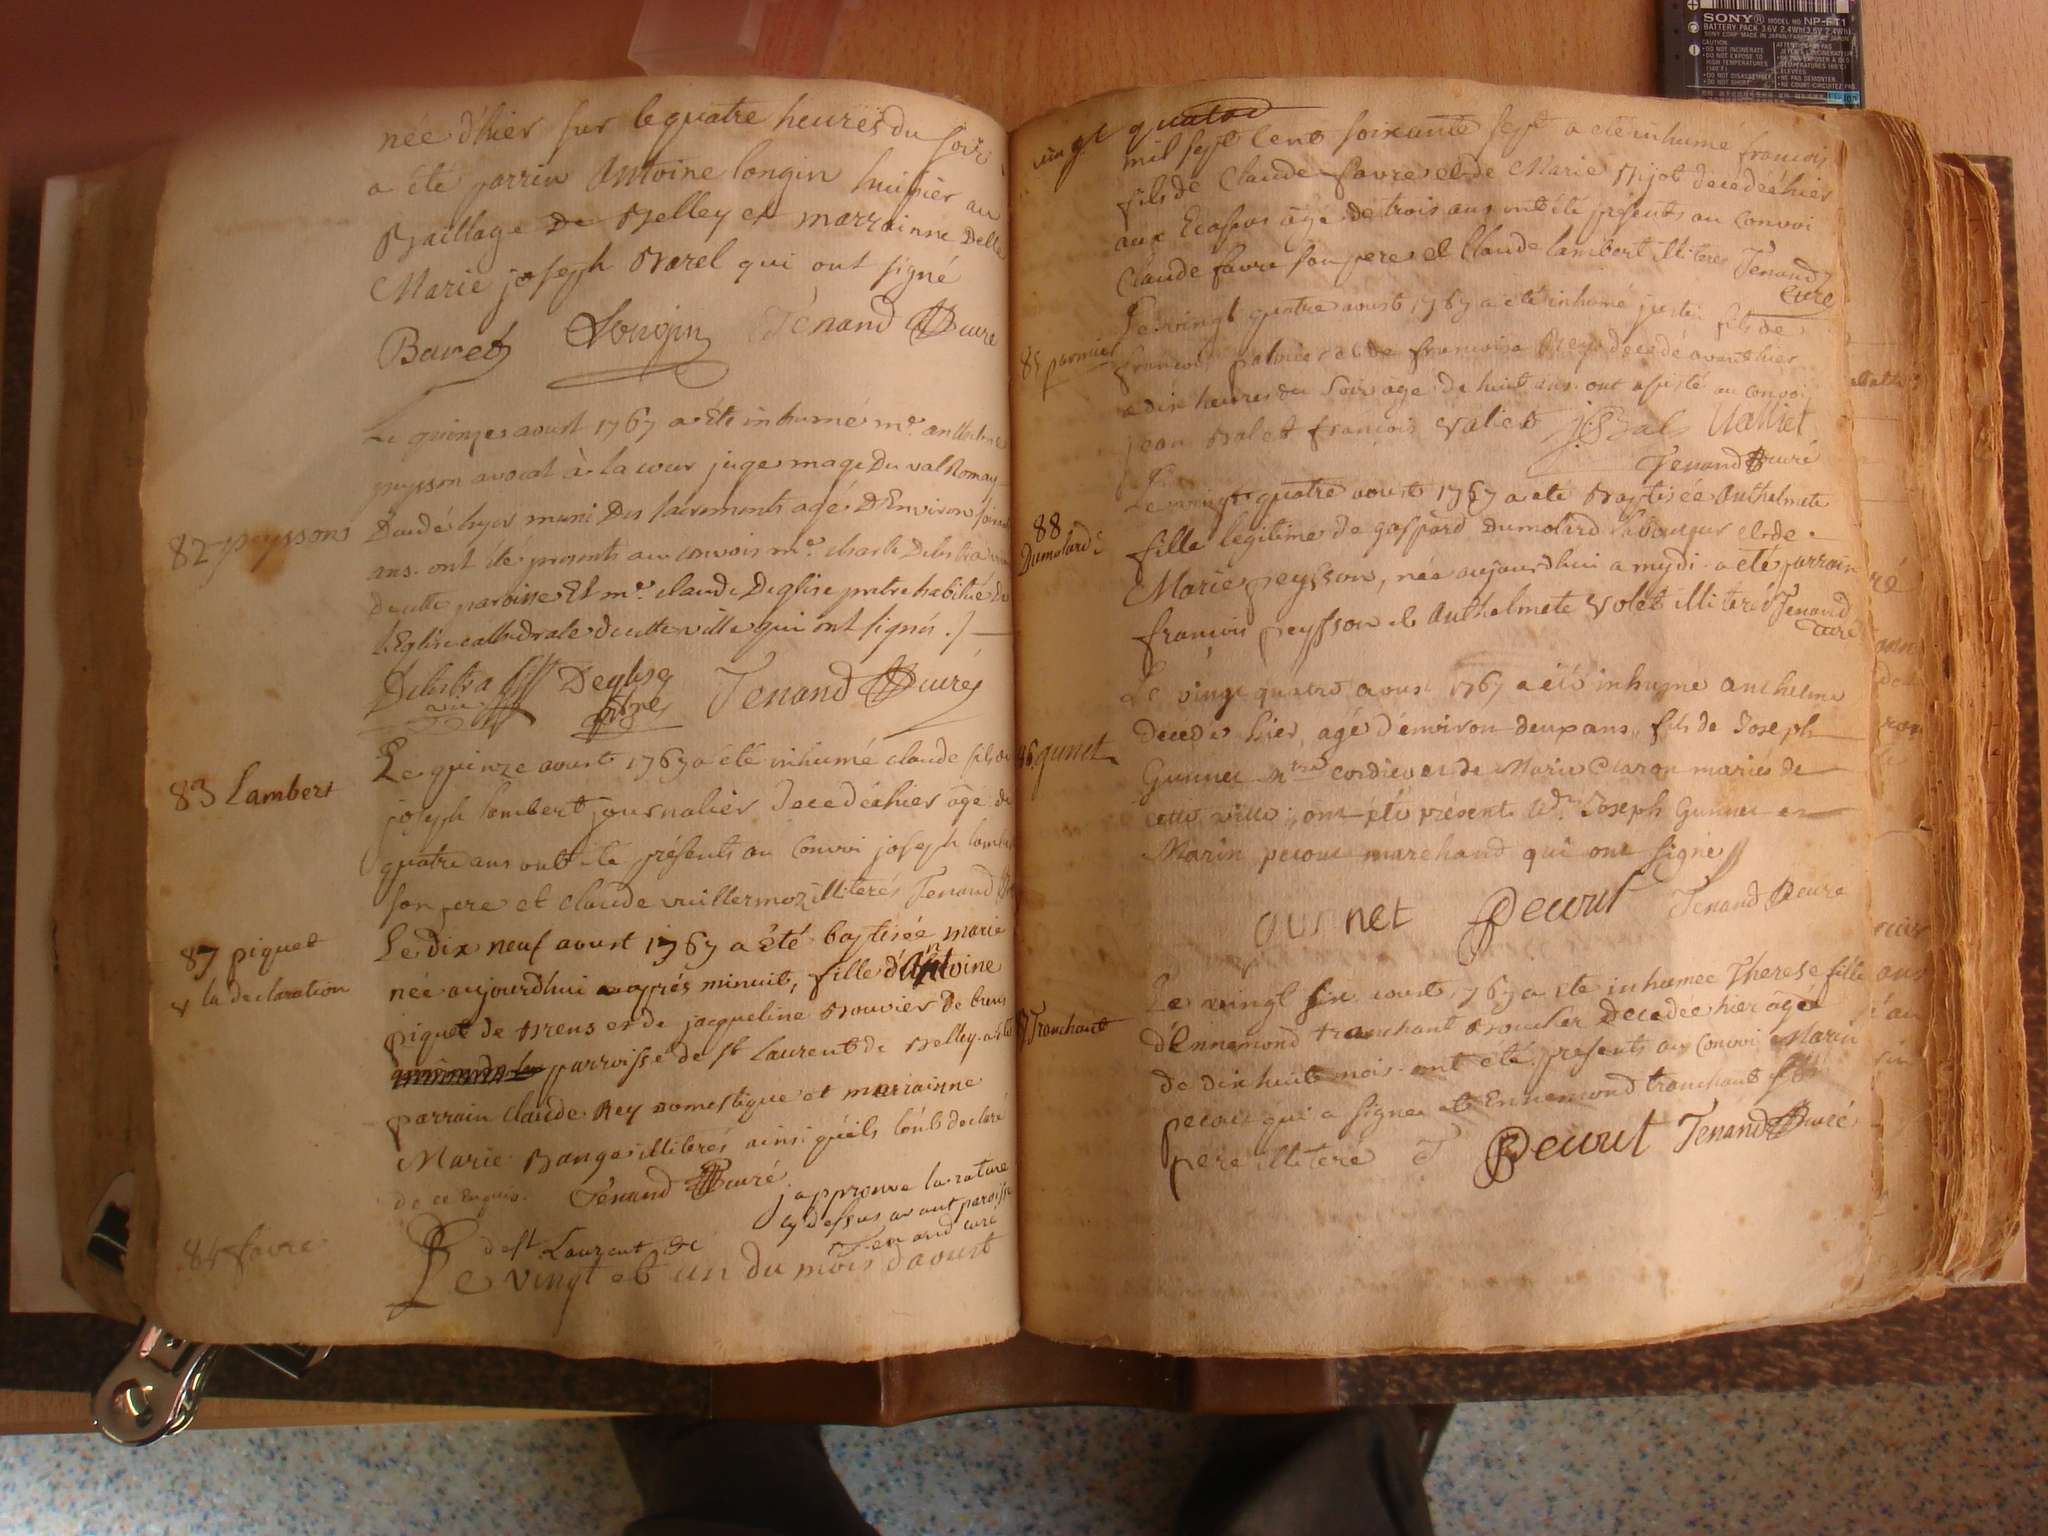 née d'hier sur le quatre heures du soir
a été parrin Antoine longin huissier au
Baillage De Belley et marrainne Delle
Marie joseph Barel qui ont signé
Longin Tenand Curé
Le quinze aoust 1767 a été inhumé me. anthelme
peysson avocat à la cour juge mage Du val Romay
82 peyssons
Decedé hyer muni Des sacrements agé D'Environ soixante
ans. ont été presents au convois me. charle Delastra
De cette paroisse Et me. claude Deglise pretre habitué De
L'Eglise cathedrale de cette ville qui ont signés ./
Delastra Deglise Tenand Curé
ptre
83 Lambert
Le quinze aoust 1767 a été inhumé claude fils de
joseph lambert journalier decedé hier âgé de
quatre ans ont été présents au Convoi joseph lambert
son pere et claude vuillermoz illiterés Tenand
87 piguet
& la declaration
Le dix neuf aoust 1767 a été baptisée marie
née aujourdhui après minuit, fille d'Antoine
piguet de brens et de jacqueline Bouvier De brens
parroisse de st laurent de Belley a été
parrain Claude Rey domestique et marrainne
Marie Bange illiterés ainsi qu'ils l'ont declaré
de ce Enquis. Tenand Curé
j'approuve la rature
cy dessus avant paroisse
de st. Laurent &c Tenand curé
84 favre
Le vingt et un du mois d'aoust
vingt quatre
mil sept cent soixante sept a été inhumé françois
fils de Claude favre et de Marie Bijot decedé hier
aux Ecassas âgé de trois ans ont été présents au Convoi
Claude favre son pere et Claude lambert illiteres Tenand
Curé
85 parmier
Le vingt quatre aoust 1767 a été inhumé juste fils de
françois palmier et de françoise Rey decedé avant hier
a dix heures du Soir âgé de huit ans. ont assisté au convoi
jean Balet françois Valiet J. Bal Valliet
Tenand Curé
88
Dumolard
Le vingt quatre aoust 1767 a été Baptisée Anthelmete
fille legitime de gaspard Dumolard laboureur et de
Marie peysson, née aujourdhui a mydi. a été parrain
françois peysson et Anthelmete Volet illiterés Tenand
curé
86 gunet
Le vingt quatre aoust 1767 a été inhumé anthelme
decedé hier, agé d'environ deux ans, fils de Joseph
Gunnet Mtre cordier et de Marie Claron mariés de
cette ville; ont été présent led. Joseph Gunnet et
Marin pecout marchand qui ont signé
Gunet Pecout Tenand Curé
Tranchant
Le vingt six aoust 1767 a été inhumée Therese fille
d'Ennemond tranchant Boucher Decedée hier âgée
de dix huit mois. ont été presents au Convoi Marin
pecout qui a signé et Ennemond tranchant
pere illiteré Pecout Tenand Curé
SONY MODEL NO. NP-FT1
BATTERY PACK 3.6V 2.4Wh